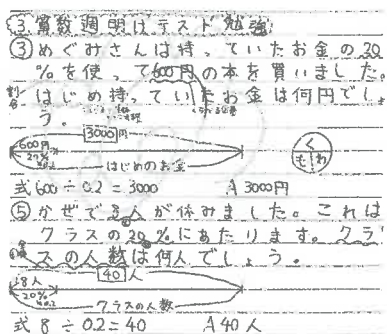 3 算数週明けテスト勉強
③めぐみさんは持っていたお金の20
%を使って600円の本を買いました。
割合
はじめ持っていたお金は何円でしょ
う。
3000円
600円
20%
はじめのお金
く
も わ
式 600÷0.2=3000 A 3000円
⑤かぜで8人が休みました。これは
クラスの20%にあたります。クラ
スの人数は何人でしょう。
40人
8人
20%
クラスの人数
式 8÷0.2=40 A 40人